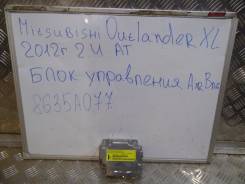 Mitsubishi Outlander XL
2012г 2.4 AT
Блок управления AirBag
8635A077